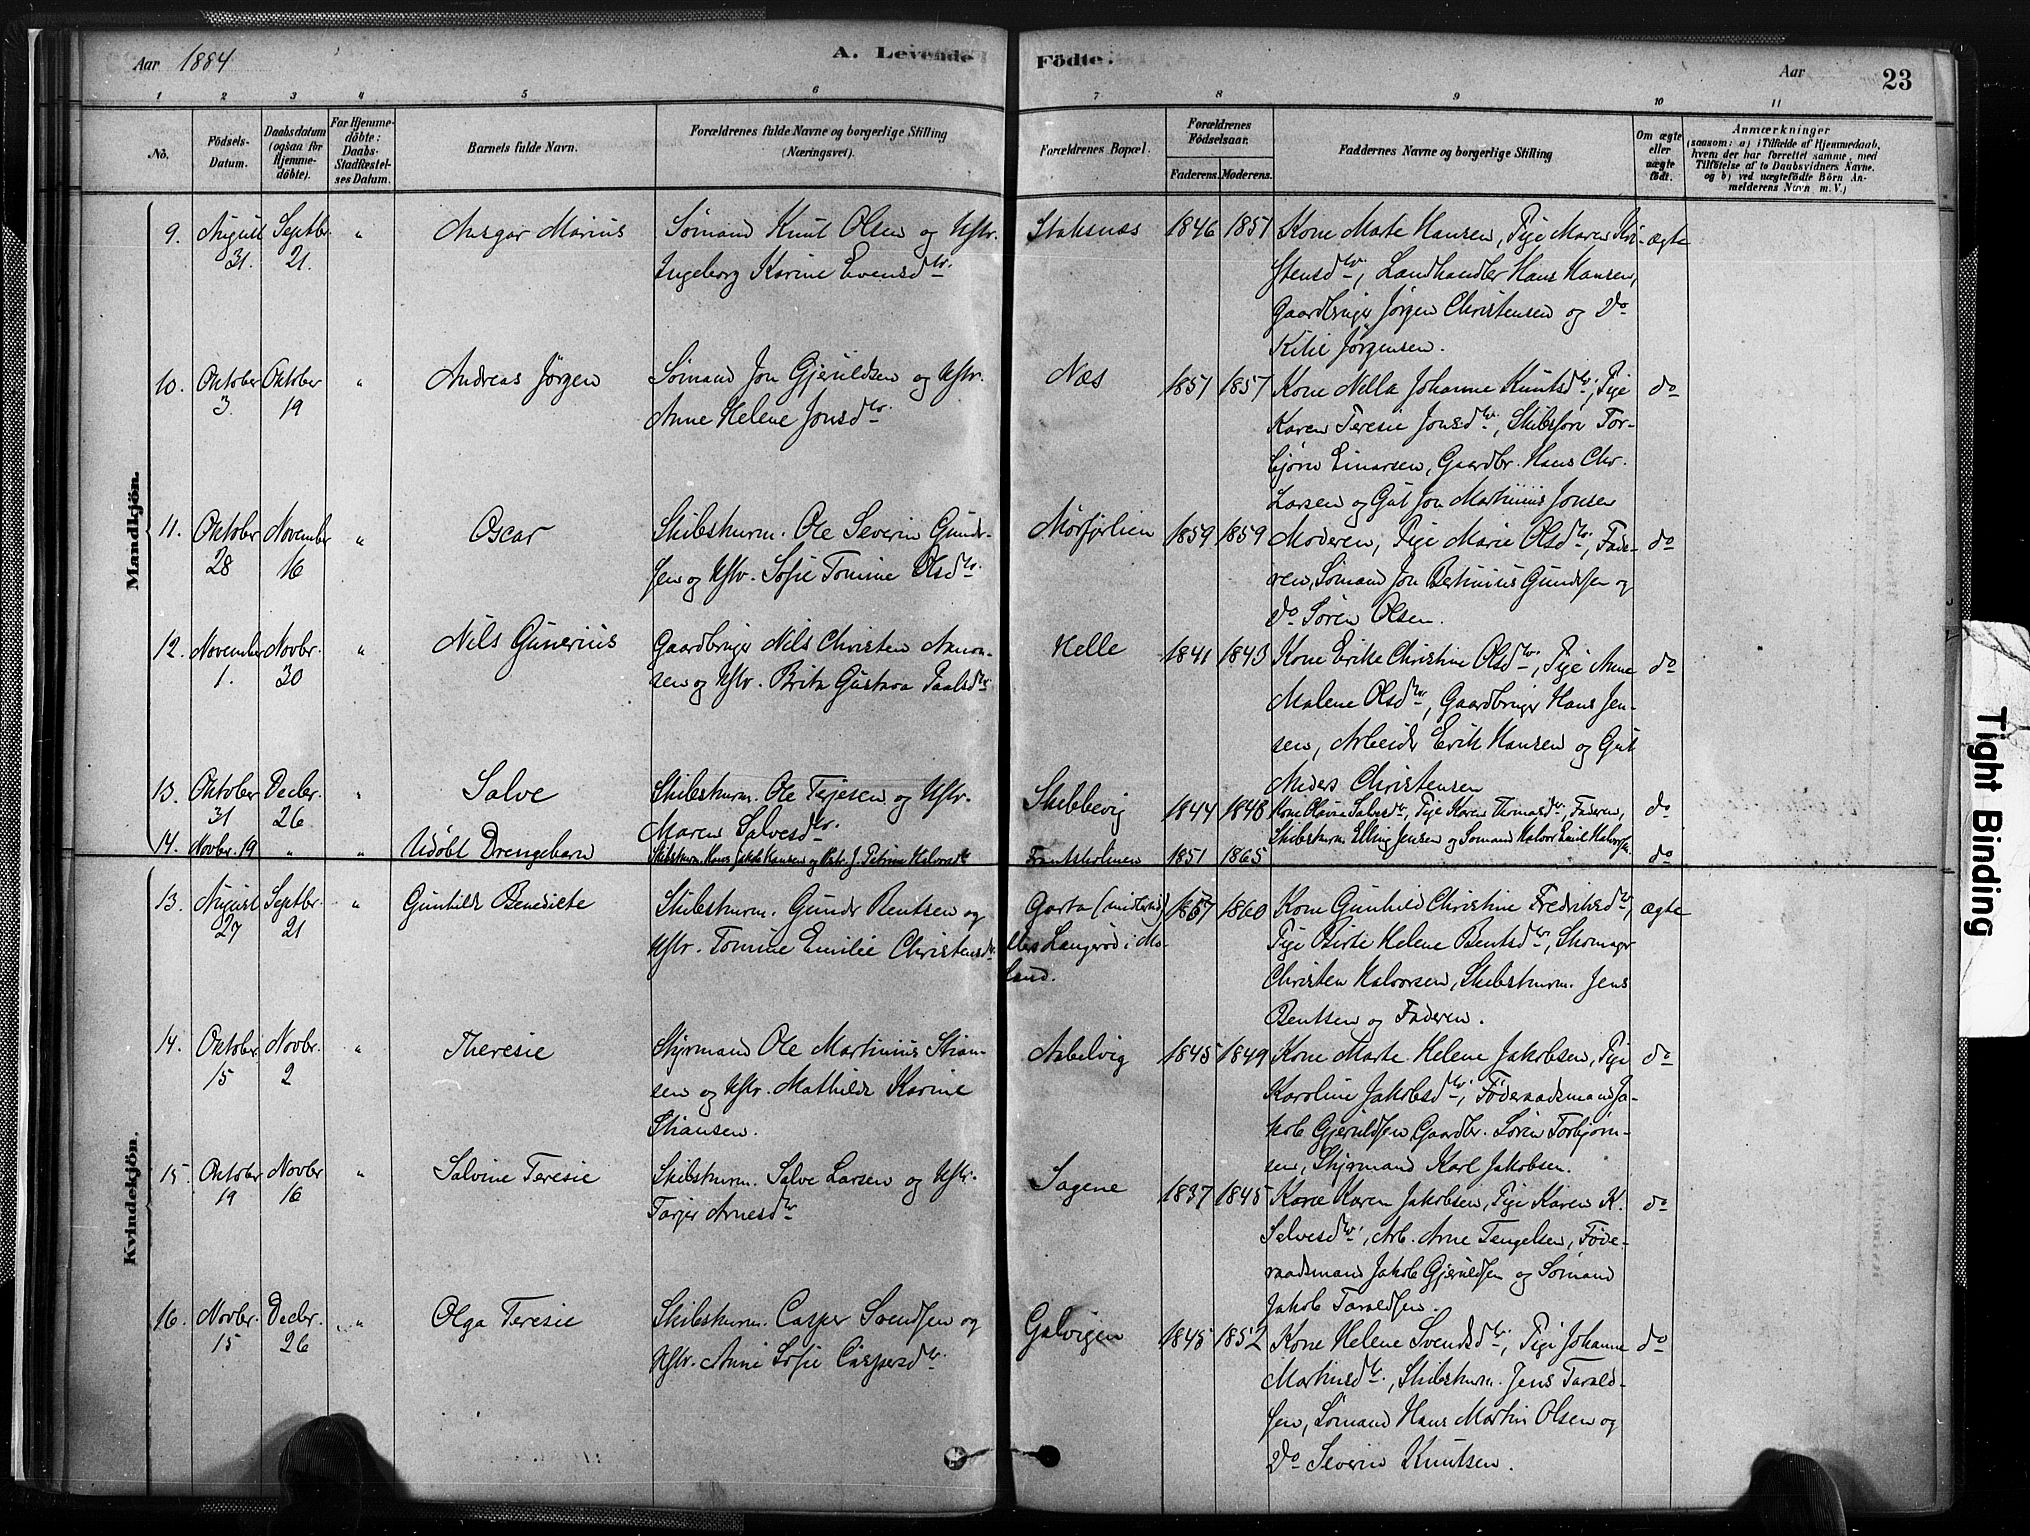 Aar 1884
A. Levende Fødte.
Aar
23
1 2 3 4 5 6 7 8 9 10 11
No.
Födsels-Datum.
Daabsdatum (ogsaa for Hjemmedöbte).
For Hjemmedöbte: Daabs-Stadfæstelses Datum.
Barnets fulde Navn.
Forældrenes fulde Navne og borgerlige Stilling (Næringsvei).
Forældrenes Bopæl.
Forældrenes Födselsaar.
Faderens. Moderens.
Faddernes Navne og borgerlige Stilling
Om ægte eller uægte födt.
Anmærkninger
(saasom: a) i Tilfælde af Hjemmedaab, hvem der har forrettet samme, med Tilföielse af to Daabsvidners Navne, og b) ved uægtefödte Börn Anmelderens Navn m. V.)
Mandkjön.
9. August 31. Septbr. 21. " Ansgar Marius
Sømand Knut Olsen og Hstr.
Ingeborg Karine Evensdtr.
Staksnæs 1846 1851
Kone Marte Hansen, Pige Maren Kri- ægte
stensdtr, Landhandler Hans Hansen,
Gaardbruger Jørgen Christensen og Do
Kitil Jørgensen.
10. Oktober 3. Oktober 19 " Andreas Jørgen
Sømand Jon Gjeruldsen og Hstr.
Anne Helene Jonsdtr
Næs 1851 1857
Kone Nella Johanne Knutsdtr, Pige do
Karen Teresie Jonsdtr, Skibsfører Tor-
bjørn Einarsen, Gaardbr. Hans Chr.
Larsen og Gut Jon Martinius Jonsen
11. Oktober 28 November 16 " Oscar
Skibstømrm. Ole Severin Gund-
sen og Hstr. Sofie Tomine Olsdtr.
Mørfjærlien 1859 1859
Moderen, Pige Marie Olsdtr, Fade- do
ren, Sømand Jon Bertinius Gundsen og
do Søren Olsen.
12. November 1. Novbr. 30 " Nils Gunerius
Gaardbruger Nils Christen Aamon-
sen og Hstr. Brita Gustava Paalsdtr
Helle 1841 1843
Kone Erike Christine Olsdtr, Pige Anne do
Malene Olsdtr, Gaardbruger Hans Jen-
sen, Arbeids Erik Hansen og Gut
Anders Christensen
13. Oktober 31 Decbr. 26 " Salve
Skibstømrm. Ole Terjesen og Hstr.
Maren Salvesdtr.
Skibbevig 1844 1848
Kone Olavia Salvesdtr, Pige Karen Thomasdtr, Faderen, do
Skibstømrm. Elling Jensen og Sømand Halvor Emil Halvorsen.
14. Novbr. 19 " " Udøbt Drengebarn
Skibstømrm. Hans Jakob Hansen og Hstr. J. Petrine Halvorsdtr
Frantsholmen 1851 1865 do
Kvindekjön.
13. August 27 Septbr. 21 " Gunhild Benedicte
Skibstømrm. Gunder Bentsen og
Hstr. Tomine Emilie Christensdtr.
Garta (midlertid) 1857 1860
Langerød i Mo-
land.
Kone Gunhild Christine Fredriksdtr, ægte
Pige Birte Helene Bentsdtr, Skomager
Christen Halvorsen, Skibstømrm. Jens
Bentsen og Faderen.
14. Oktober 15 Novbr. 2 " Theresie
Styrmand Ole Martinius Stian-
sen og Hstr. Mathilde Karine
Stiansen.
Asbelvig 1845 1849
Kone Marte Helene Jakobsen, Pige do
Karoline Jakobsdtr, Føderaadsmand Ja-
kob Gjeruldsen Gaardbr. Søren Torbjørn-
sen, Styrmand Karl Jakobsen.
15. Oktober 19 Novbr 16 " Salvine Teresie
Skibstømrm. Salve Larsen og Hstr.
Tarjer Arnesdtr
Sagene 1837 1845
Kone Karen Jakobsen, Pige Karen K. do
Salvesdtr, Arb. Arne Tengelsen, Føde-
raadsmand Jakob Gjeruldsen og Sømand
Jakob Taraldsen.
16. Novbr. 15 Decbr. 26 " Olga Teresie
Skibstømrm. Casper Svendsen og
Hstr. Anne Sofie Caspersdtr.
Galvigen 1845 1852
Kone Helene Svendsdtr, Pige Johanne do
Martinsdtr, Skibstømrm. Jens Tarald-
sen, Sømand Hans Martin Olsen og
Do Severin Knutsen.
Tight Binding